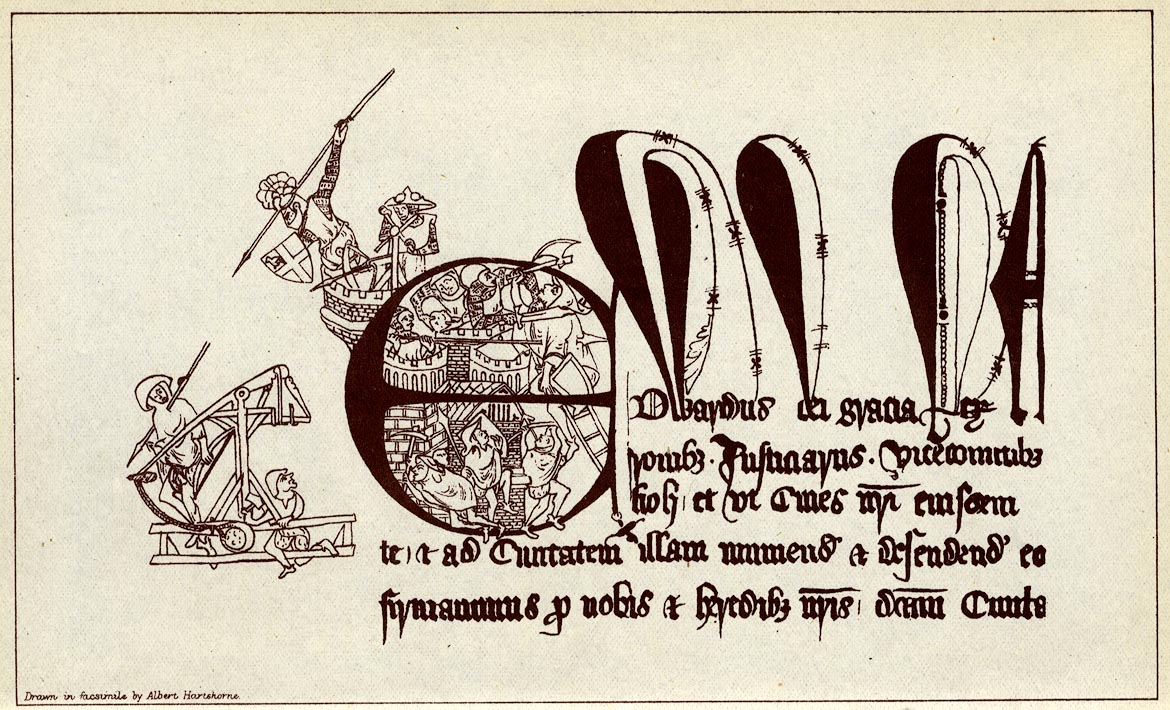 EDWA
Dwardus dei gracia Rex
ronibz. Justiciarys. vicecomitibz
et vt Ciues nri eiusdem
te) & ad Ciuitatem illam muniend & defendend eo
firmauimus p nobis & heredibz nris dcam Ciuita
Drawn in facsimile by Albert Hartshorne.